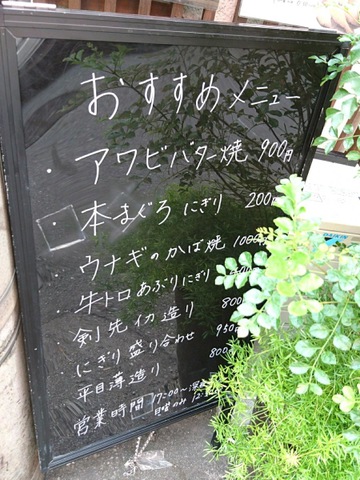 おすすめメニュー
・アワビバター焼 900円
・本まぐろにぎり 200円
・ウナギのかば焼 1000
・牛トロあぶりにぎり
剣先イカ造り 800
にぎり盛り合わせ 950
平目薄造り 800
営業時間 17:00〜
日曜のみ 12: